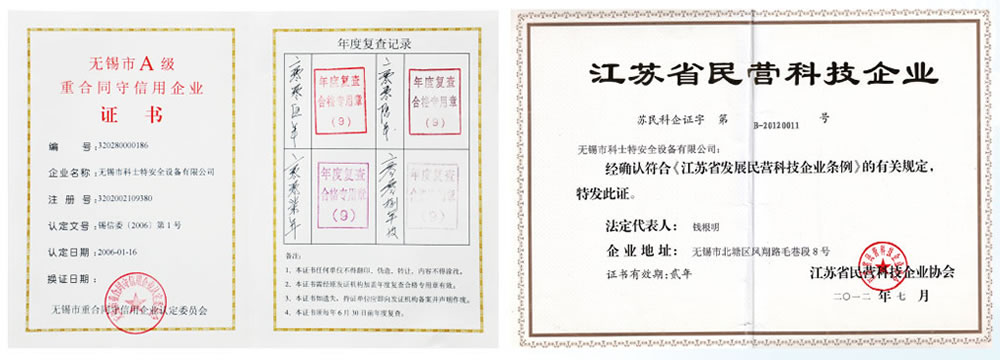 无锡市A级
重合同守信用企业
证书
编号：320280000186
企业名称：无锡市科士特安全设备有限公司
注册号：3202002109380
认定文号：锡信委（2006）第1号
认定日期：2006-01-16
换证日期：
无锡市重合同守信用企业认定委员会
年度复查记录
年度复查
合格专用章
(9)
年度复查
合格专用章
(9)
年度复查
合格专用章
(9)
年度复查
合格专用章
(9)
备注：
1、本证书任何单位不得翻印、伪造、转让，内容不得涂改。
2、本证书需经原发证机构加盖年度复查合格专用章有效。
3、本证书如遗失，持证单位应即向发证机构备案并声明作废。
4、本证书须每年6月30日前年度复查。
江苏省民营科技企业
苏民科企证字 第 B-20120011 号
无锡市科士特安全设备有限公司：
经确认符合《江苏省发展民营科技企业条例》的有关规定，
特发此证。
法定代表人：钱根明
企业地址：无锡市北塘区凤翔路毛巷段8号
证书有效期：贰年
江苏省民营科技企业协会
二〇一二年七月